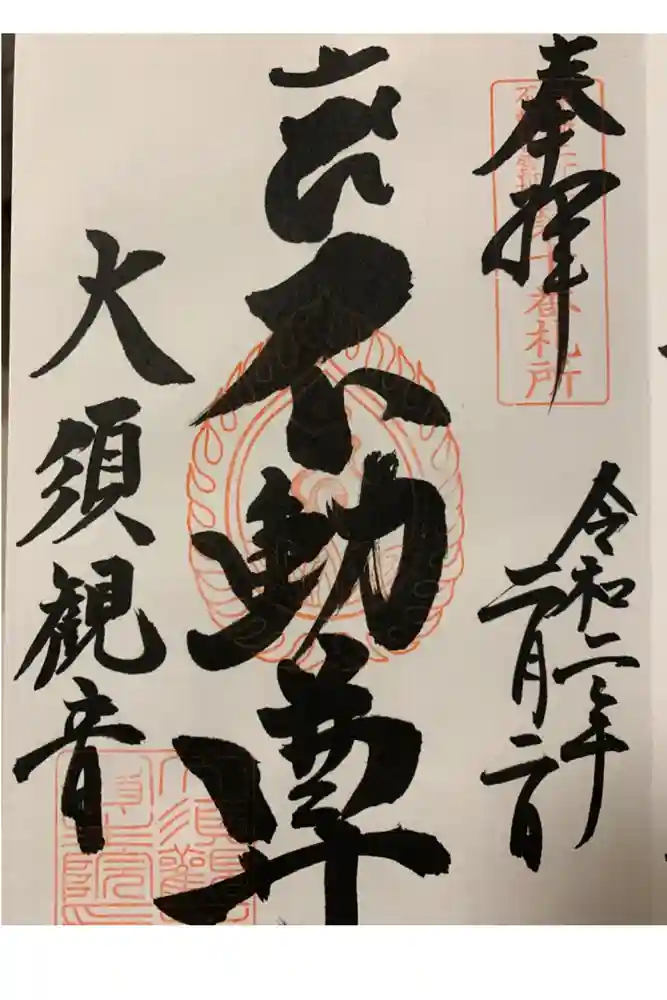 奉拝
令和二年
二月二日
不動尊
大須観音
番札所